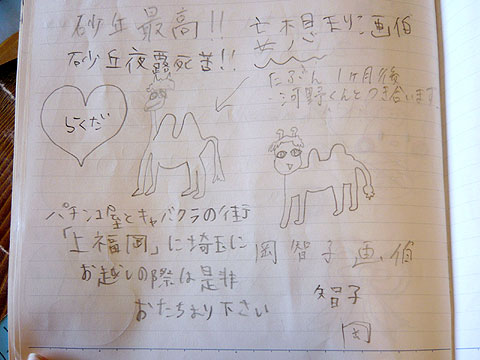 砂丘最高!!
砂丘夜露死苦!!
らくだ
妄想
画伯
たぶん1ヶ月後
河野くんとつき合います
パチンコ屋とキャバクラの街
「上福岡」に埼玉に
お越しの際は是非
おたちより下さい
岡智子画伯
智子